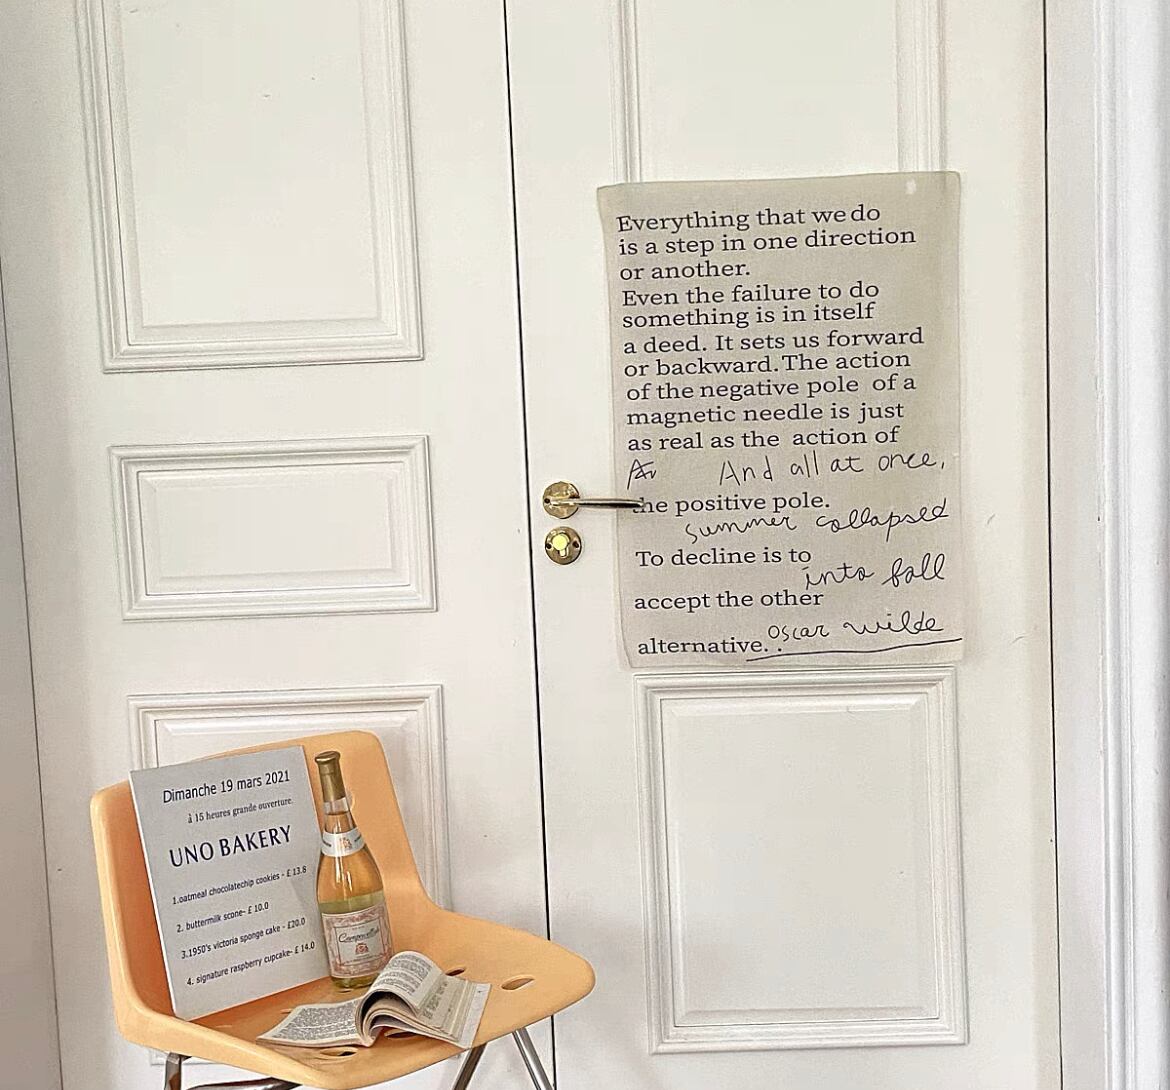 Everything that we do
is a step in one direction
or another.
Even the failure to do
something is in itself
a deed. It sets us forward
or backward. The action
of the negative pole of a
magnetic needle is just
as real as the action of
And all at once,
the positive pole.
summer collapsed
To decline is to
into fall
accept the other
oscar wilde
alternative. .
Dimanche 19 mars 2021
à 15 heures grande ouverture.
UNO BAKERY
1.oatmeal chocolatechip cookies - £ 13.8
2. buttermilk scone- £ 10.0
3.1950's victoria sponge cake - £20.0
4. signature raspberry cupcake- £ 14.0